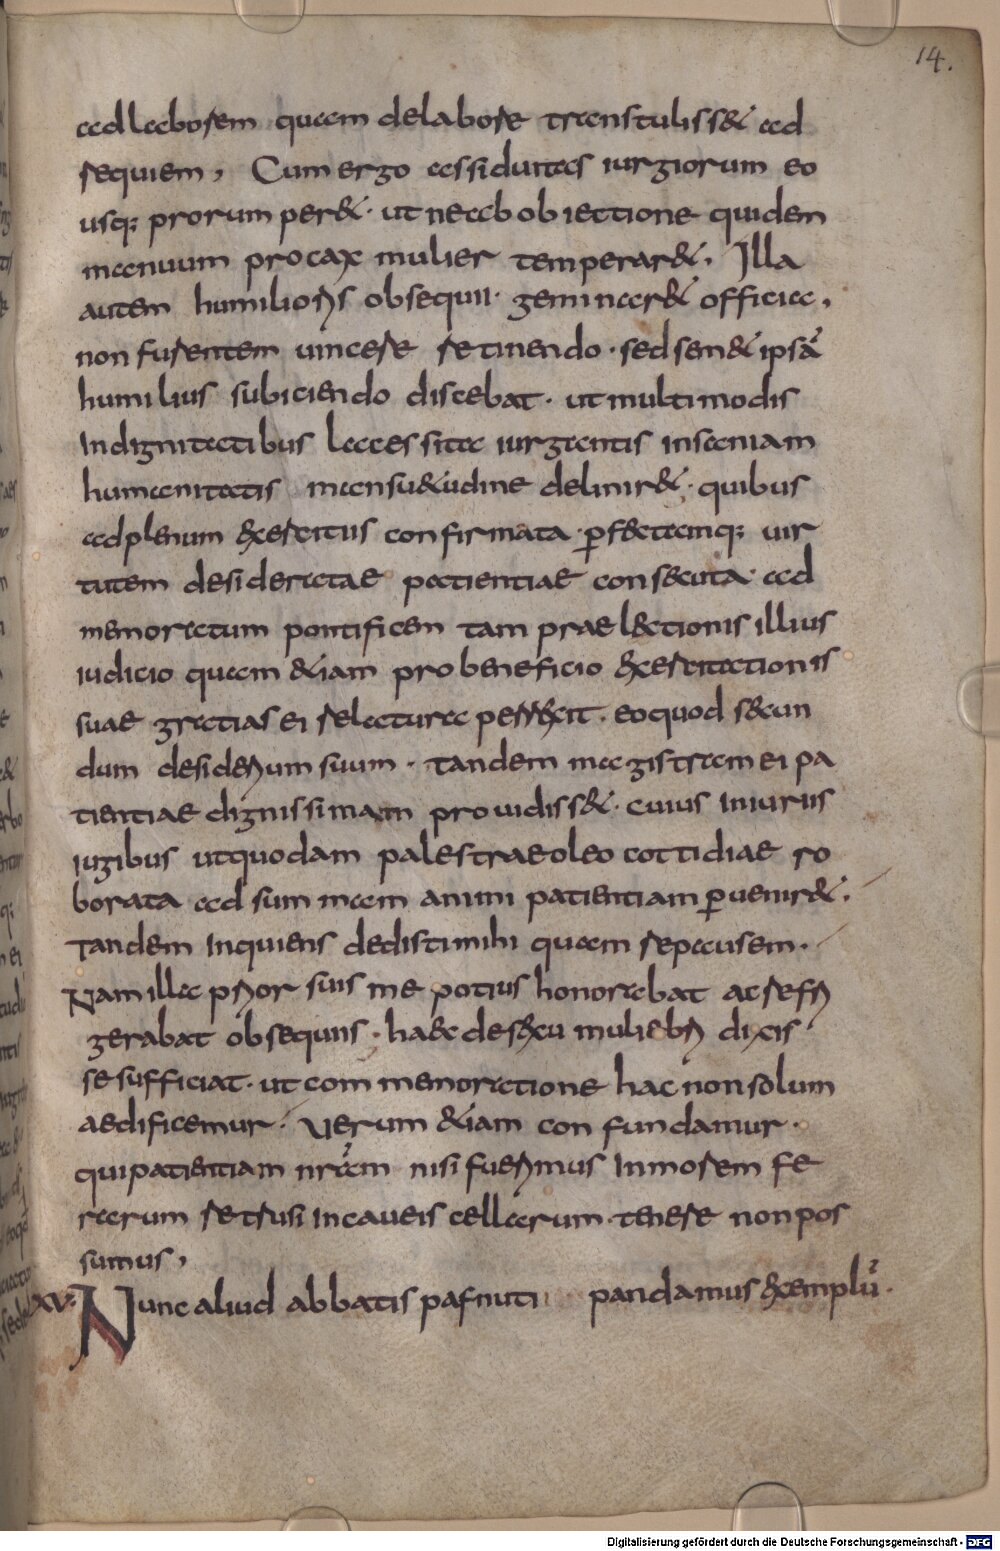 14.
ad laborem quam de labore transtulisset ad
requiem, Cum ergo assiduitas iurgiorum eo
usq; prorumperet· ut ne ab obiectione quidem
manuum procax mulier temperaret. Illa
autem humilioris obsequii· geminaret officia,
non furentem uincere retinendo· sed sendet ipsā
humilius subiciendo discebat· ut multimodis
indignitatibus lacessita iurgantis insaniam
humanitatis mansuetudine deliniret· quibus
ad plenum exercitus confirmata· ꝑfectamq; uir
tutem desideratae patientiae consecuta· ad
memoratum pontificem tam prae lectionis illius
iudicio quam etiam pro beneficio exercitationis
suae gratias ei relatura perrexit· eo quod secun
dum desiderium suum· tandem magistram ei pa
tientiae dignissimam prouidisset· cuius iniuriis
iugibus ut quodam palestrae oleo cottidiae ro
borata ad summam animi patientiam ꝑueniret.
Tandem inquiens dedisti mihi quam repcusem·
Nam illa prior suis me potius honorabat ac refri
gerabat obsequiis· haec de sexu muliebri dixis
se sufficiat· ut commemoratione hac non solum
aedificemur· Uerum etiam confundamur·
qui patientiam nr̄am nisi fuerimus in morem fe
rarum retrusi in caueis cellarum· tenere non pos
sumus,
XV· Nunc aliud abbatis pafnuti pandamus exemplū·
Digitalisierung gefördert durch die Deutsche Forschungsgemeinschaft - DFG